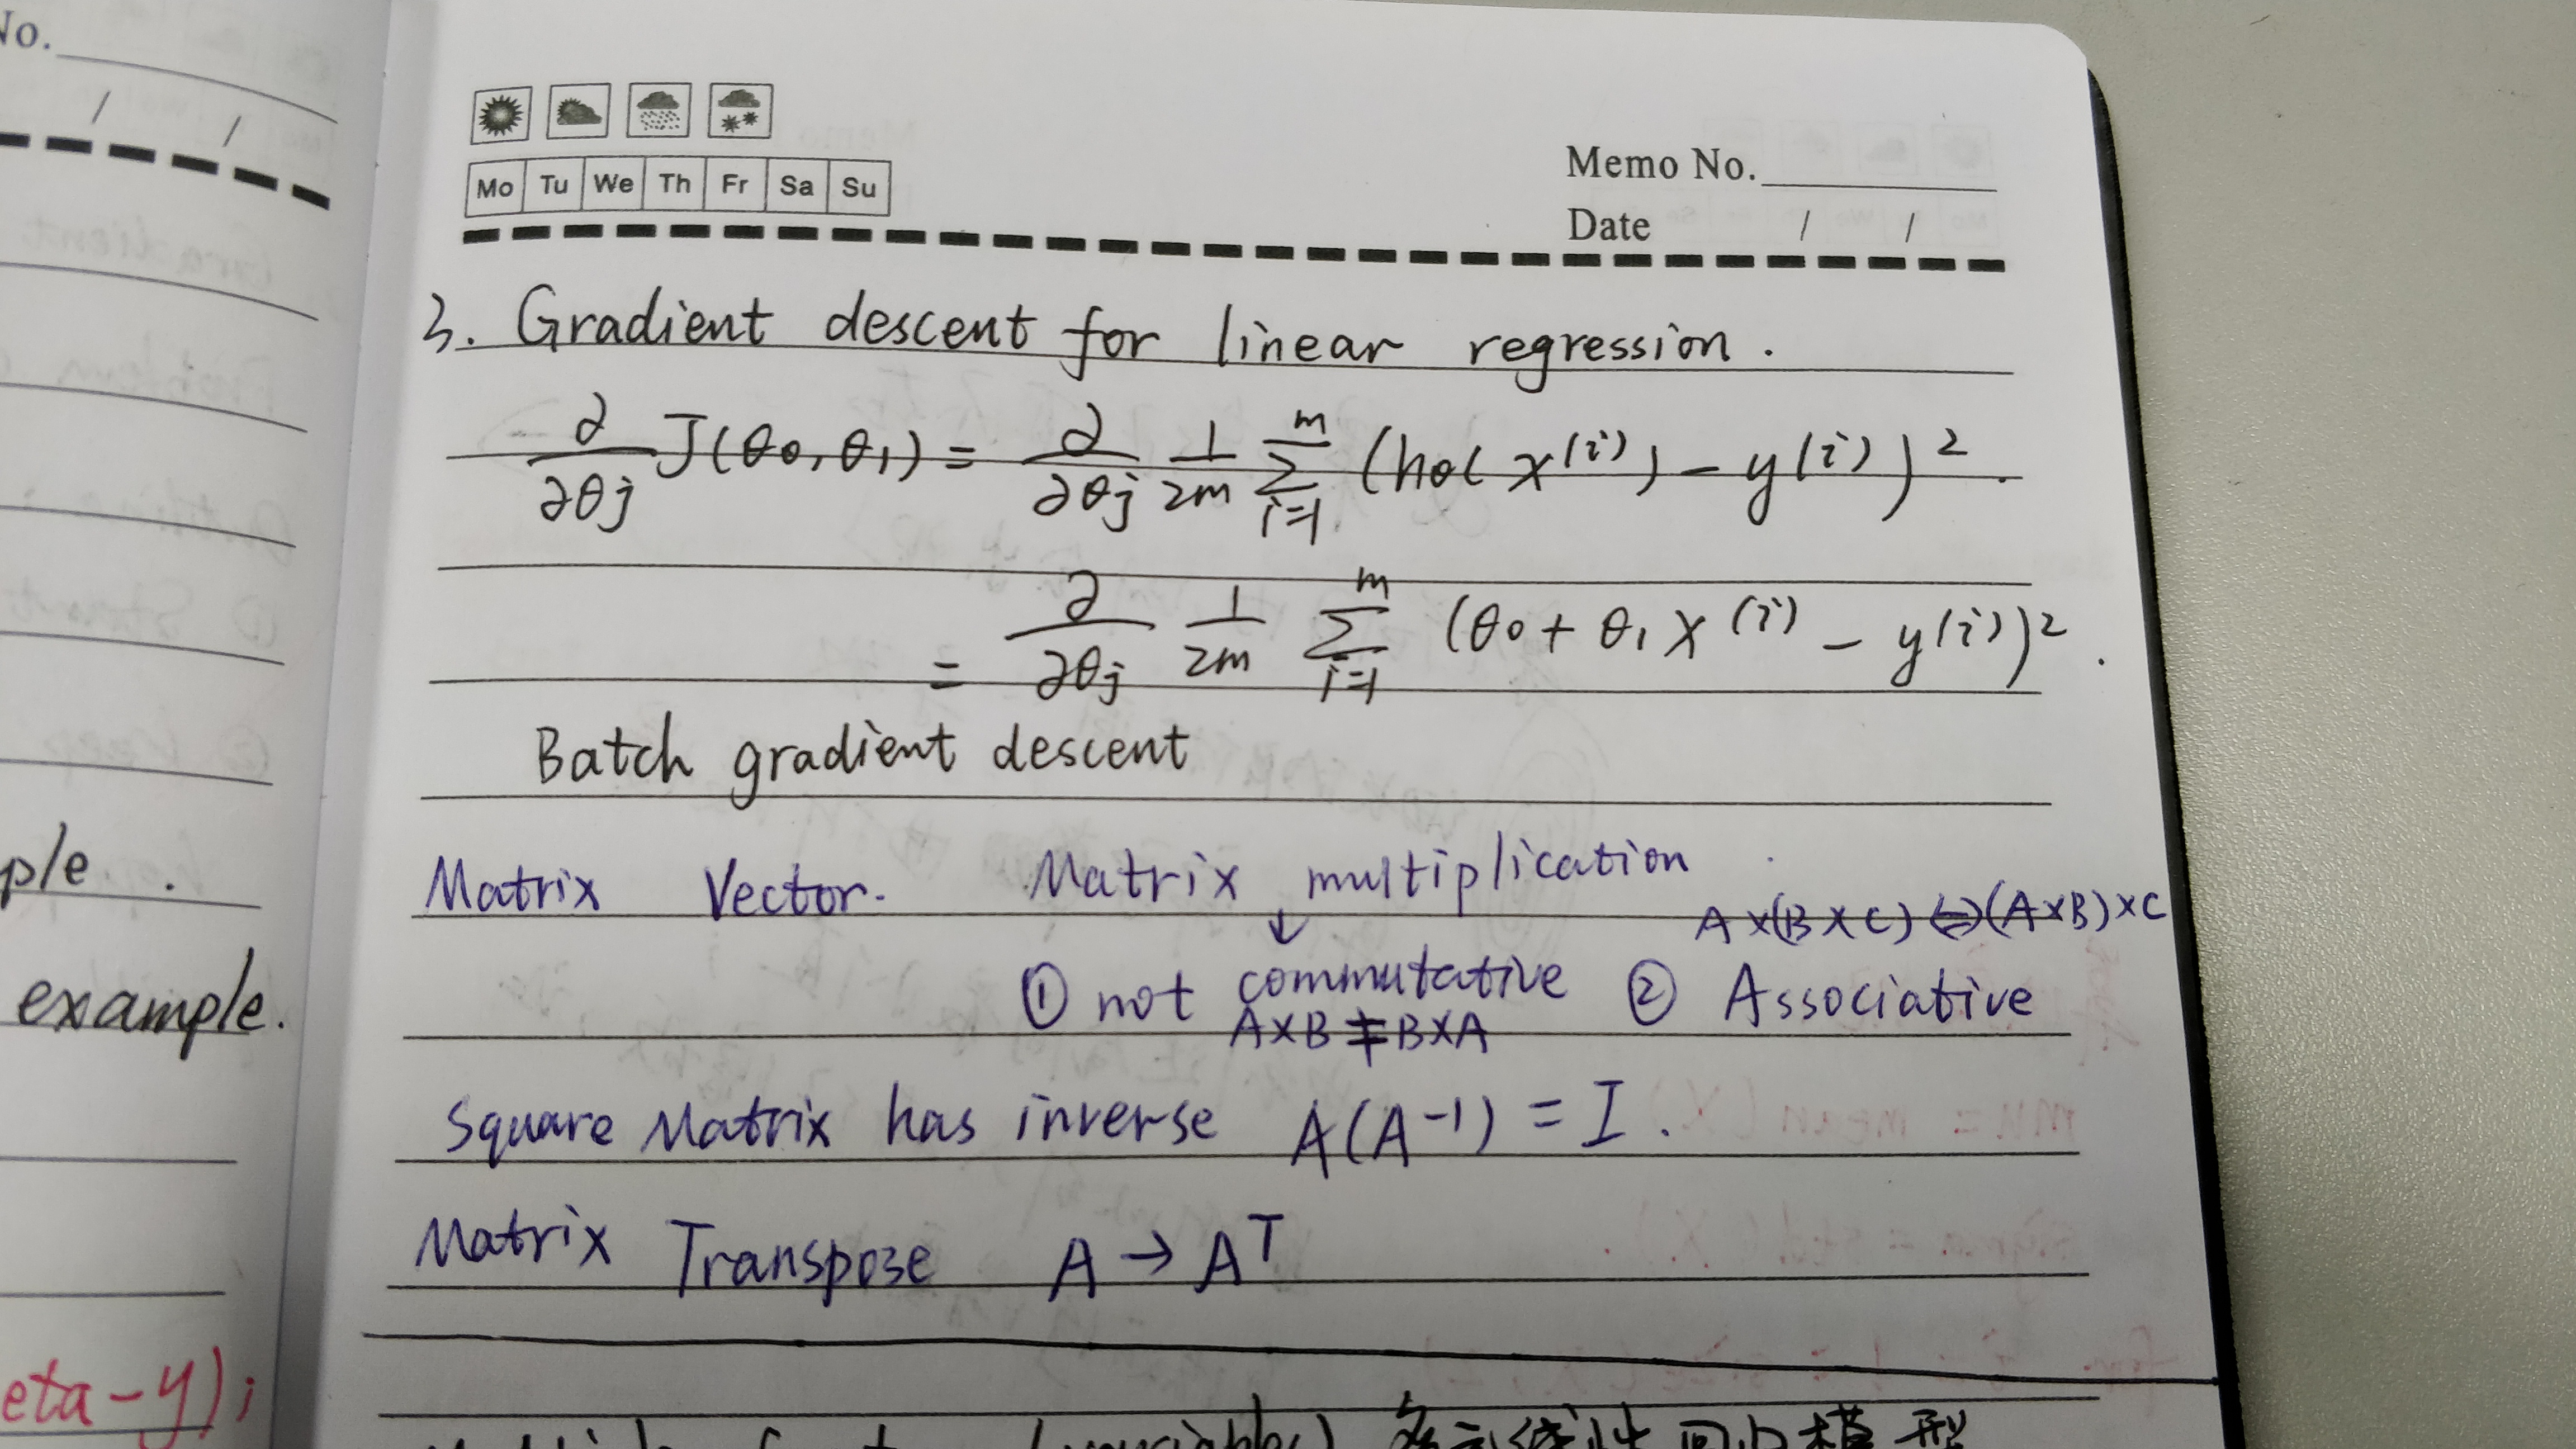 No.
/ /
Mo Tu We Th Fr Sa Su
Memo No.
Date / /
3. Gradient descent for linear regression.
∂/∂θj J(θ0, θ1) = ∂/∂θj 1/2m Σ i=1 m (hθ(x^(i)) - y^(i))^2.
= ∂/∂θj 1/2m Σ i=1 m (θ0 + θ1 x^(i) - y^(i))^2.
Batch gradient descent
Matrix Vector. Matrix multiplication
↓ A×(B×C) ⇔ (A×B)×C
① not commutative ② Associative
A×B ≠ B×A
Square Matrix has inverse A(A^-1) = I.
Matrix Transpose A → A^T
ple.
example.
eta-y);